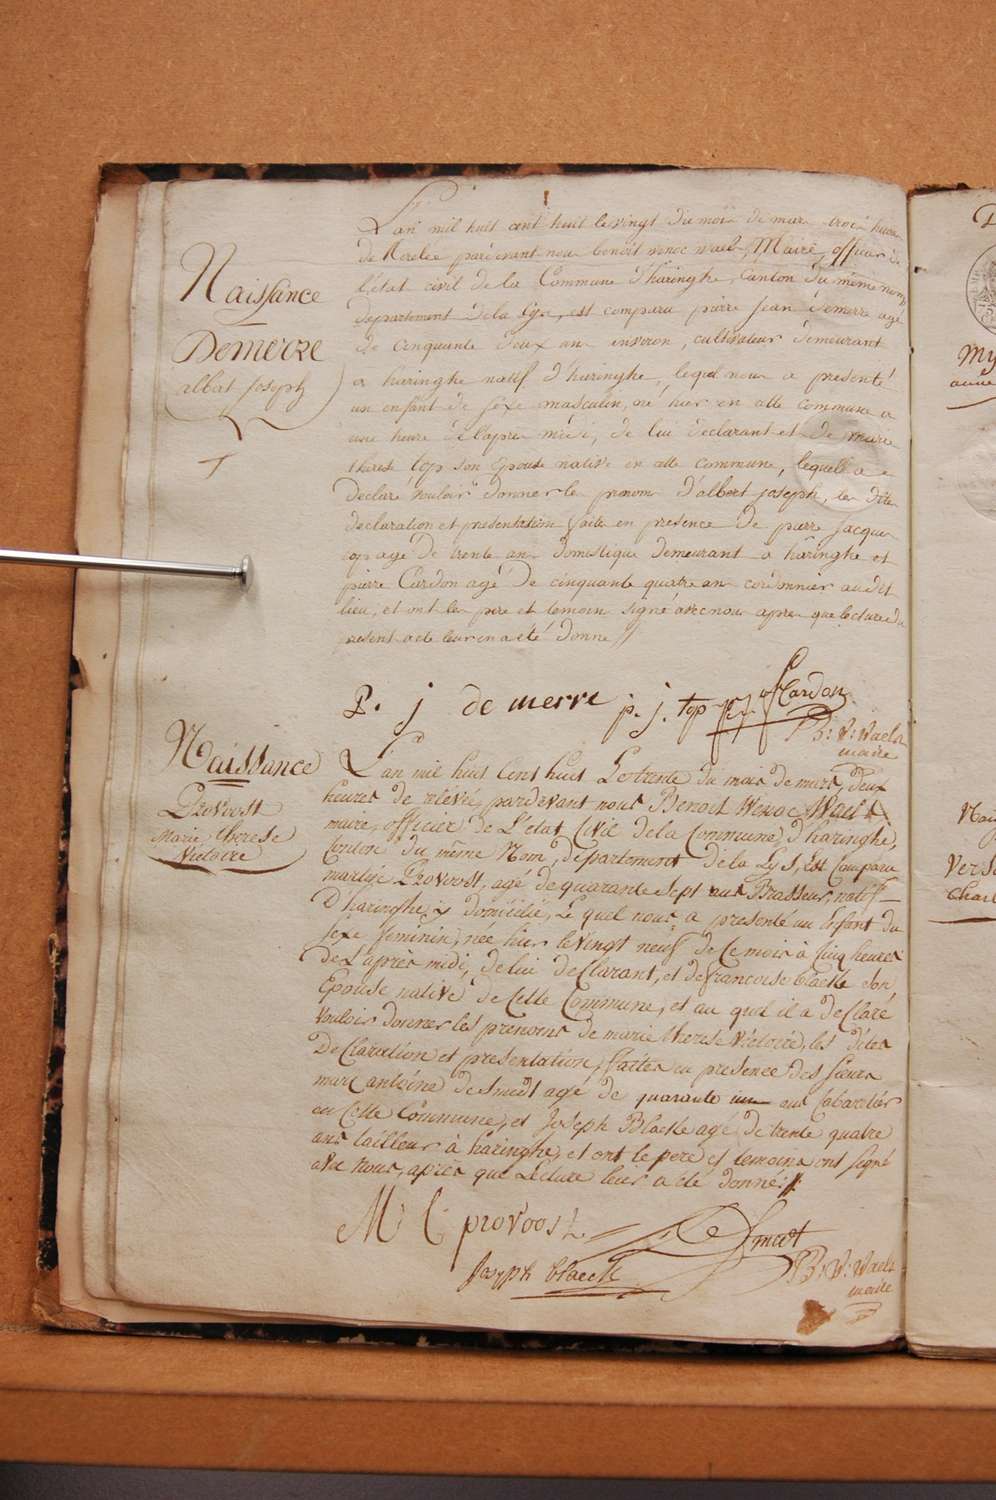 Naissance
Demerre
albat Joseph
L'an mil huit cent huit le vingt du mois de mars trois heures
de Relevée pardevant nous benoit winoc wael, Maire, officier de
l'état civil de la Commune d'haringhe, Canton du même nom
departement de la Lys, est comparu pierre Jean demerre agé
de cinquante deux ans environ, cultivateur demeurant
a haringhe natif d'haringhe, lequel nous a presenté
un enfant de sexe masculin, né hier en cette commune a
une heure de l'apres midi, de lui declarant et de marie
therese top son Epouse native en cette commune, lequel a
declaré vouloir donner le prenom d'albert joseph, les dite
declaration et presentation faite en presence de pierre Jacque
top agé de trente ans domestique demeurant a haringhe et
pierre Cardon agé de cinquante quatre ans cordonnier au dit
lieu, et ont les pere et temoins signé avec nous apres que lecture du
present acte leur en a été donné //
P. j de merre p. j. top Cardon
B: W: Waels
maire
Naissance
Provoost
Marie therese
Victoire
L'an mil huit Cent huit Le trente du mois de mars, deux
heures de rélévé, pardevant nous Benoit Winoc Wael
maire, officier de L'état Civil de la Commune, d'haringhe,
Canton du même Nom, département dé la Lys, Est Comparu
Provoost, agé de quarante Sept ans Brasseur, natif
D'haringhe y domicilié, Lequel nous a presenté un Enfant du
sexe feminin, née hier le vingt neuf de Ce mois à Cinq heures
de L'après midi, de lui declarant, et de francoise blaecke son
Epouse native de Cette Commune, et au quel il a declaré
vouloir donner les prenoms de marie therese Victoire, les dites
Declaration et presentation, faites en presence des sieurs
marc antoine desmedt agé de quarante un ans Cabaretier
en Cette Commune, et Joseph Blaecke agé de trente quatre
ans tailleur à haringhe, et ont le pere et temoins ont signé
avec nous, après que Lecture leur a été donné //
M C provoost
De Smedt
Joseph blaecke
B: W: Waels
maire